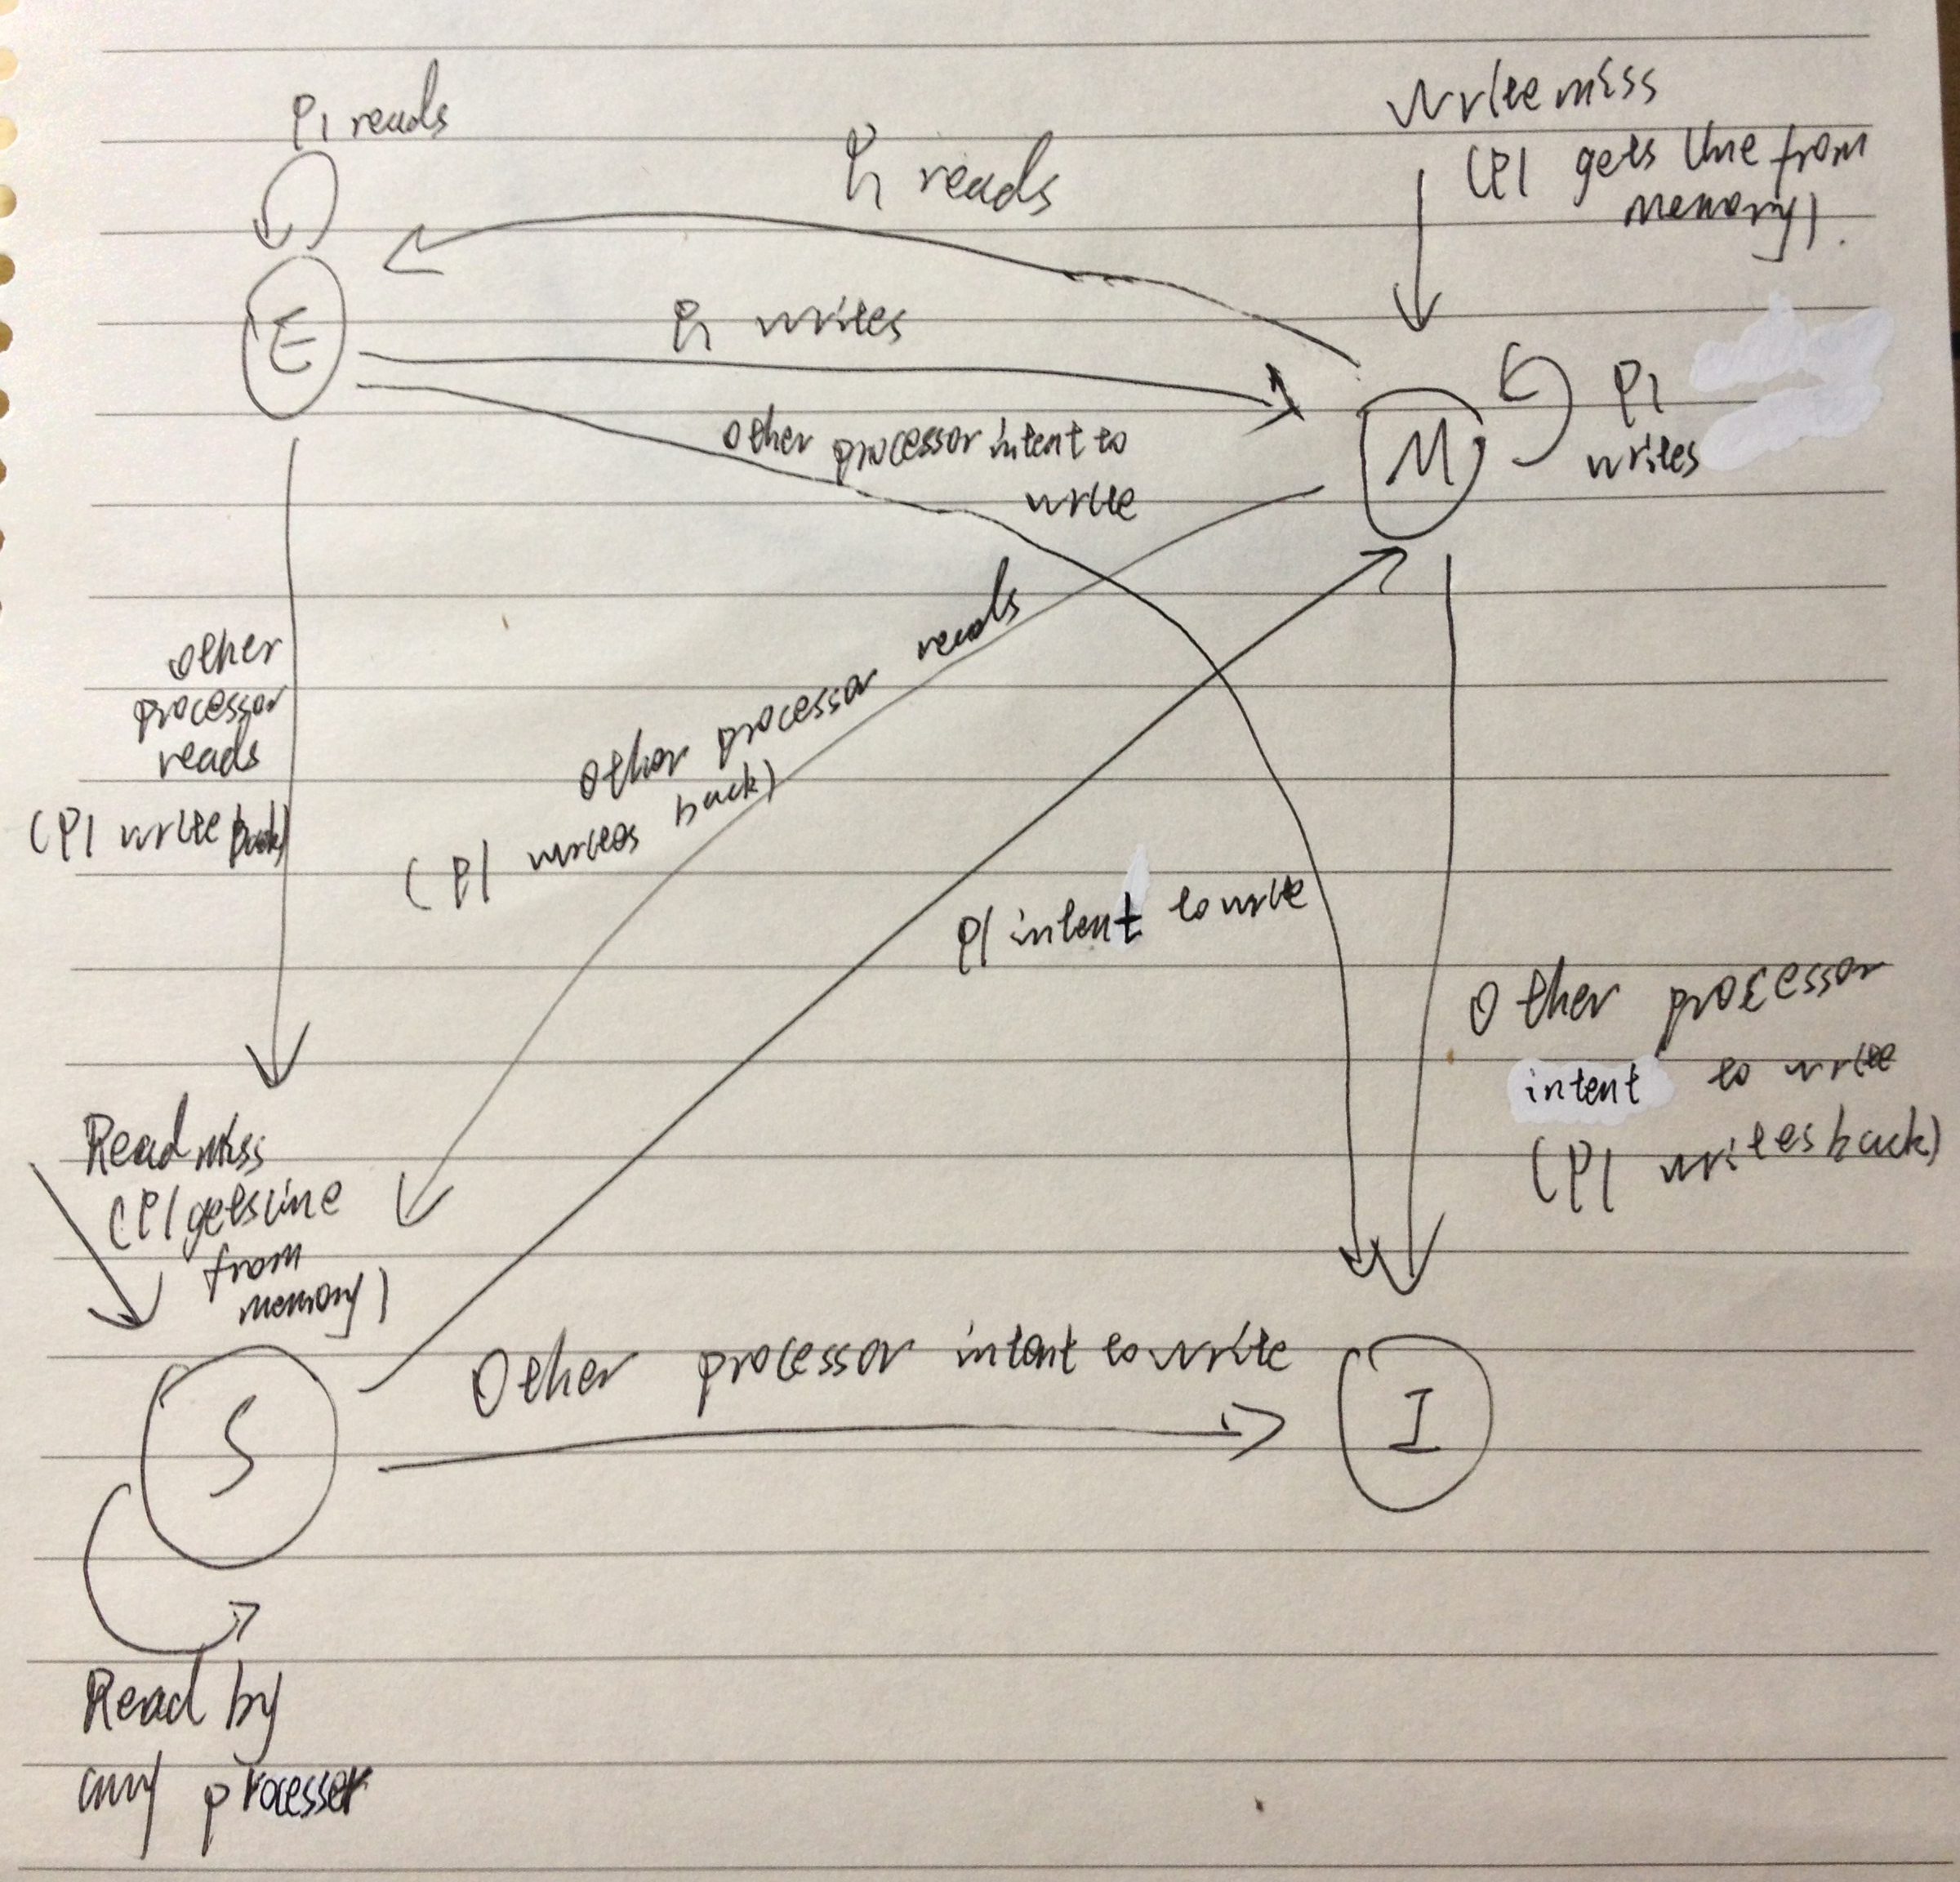 P1 reads
Write miss
(P1 gets line from
memory)
P1 reads
E
P1 writes
M
P1
writes
other processor intent to
write
other
processor
reads
(P1 write back)
other processor reads
(P1 writes back)
P1 intent to write
Other processor
intent to write
(P1 writes back)
Read miss
(P1 gets line
from
memory)
S
Other processor intent to write
I
Read by
any processer